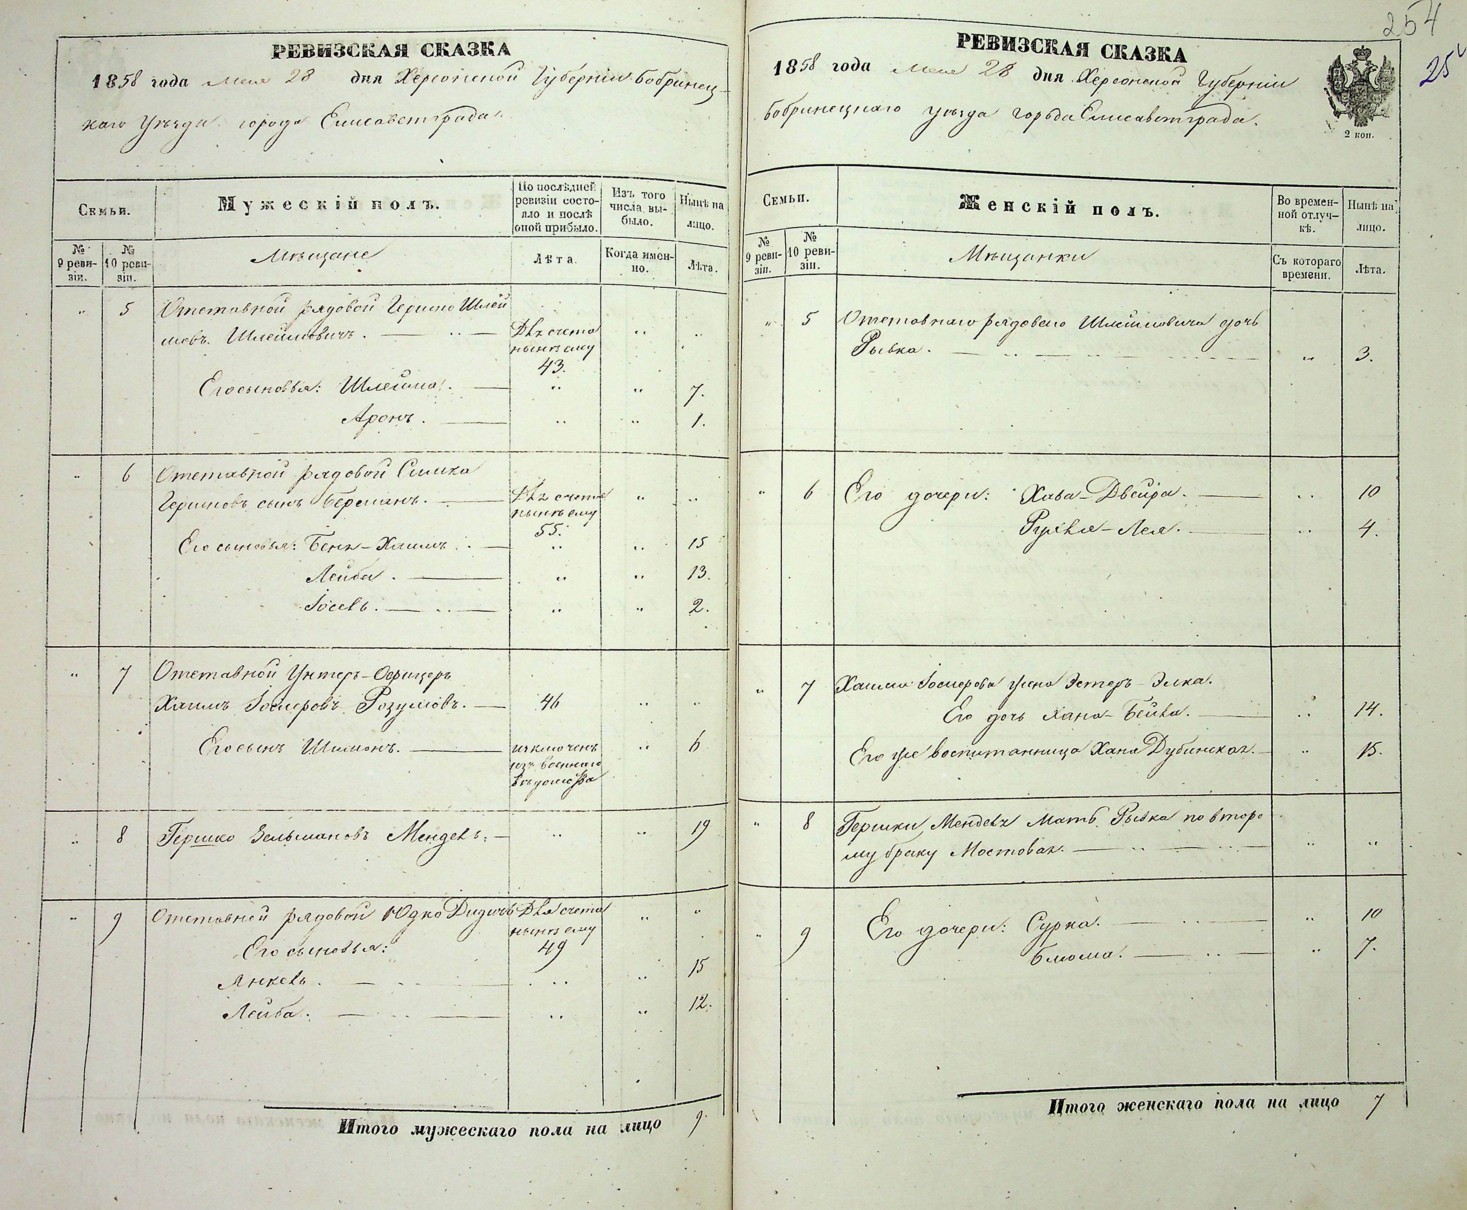 РЕВИЗСКАЯ СКАЗКА
1858 года Мая 28 дня Херсонской Губерніи Бобринец-
каго Уѣзда города Елисаветграда.
Семьи.
Мужескій полъ.
По послѣдней ревизіи состо-
яло и послѣ оной прибыло.
Изъ того числа вы-
было.
Нынѣ на лицо.
№ 9 реви-
зіи.
№ 10 реви-
зіи.
Мѣщане
Лѣта.
Когда имен-
но.
Лѣта.
" 5 Отставной рядовой
Шлеймовичъ. Для счета " "
нынѣ ему
43.
Его сыновья: Шлейма. " " 7.
Аронъ. " " 1.
" 6 Отставной рядовой Симха
сынъ Берманъ. Для счета " "
нынѣ ему
55.
Его сыновья: Бенъ-Хаимъ. " " 15
Лейба. " " 13.
Іосевъ. " " 2.
" 7 Отставной Унтеръ-Офицеръ
Хаимъ Розумовъ. 46 " "
Его сынъ Шимонъ. исключенъ " 6
изъ военнаго
вѣдомства
" 8 Гершко Зельмановъ Мендевъ. " " 19
" 9 Отставной рядовой Юдко Дидичъ Для счета " "
нынѣ ему
Его сыновья: 49
Янкевъ. " " 15
Лейба. " " 12.
Итого мужескаго пола на лицо 9.
254
25
РЕВИЗСКАЯ СКАЗКА
1858 года Мая 28 дня Херсонской Губерніи
Бобринецкаго уѣзда города Елисаветграда.
2 коп.
Семьи.
Женскій полъ.
Во времен-
ной отлуч-
кѣ.
Нынѣ на лицо.
№ 9 реви-
зіи.
№ 10 реви-
зіи.
Мѣщанки
Съ котораго времени.
Лѣта.
" 5 Отставнаго рядоваго Шлеймовича дочь
Рывка. " 3.
" 6 Его дочери: Хава-Двейра. " 10
Лея. " 4.
" 7 Хаима жена Эстеръ-Элка.
Его дочь Хана-Бейла. " 14.
Его же воспитанница Хана Дубинская. " 15.
" 8 Гершки Мендевъ Мать Рывка по второ-
му браку Мостовая. " "
" 9 Его дочери: Сурка. " 10
Блюма. " 7.
Итого женскаго пола на лицо 7